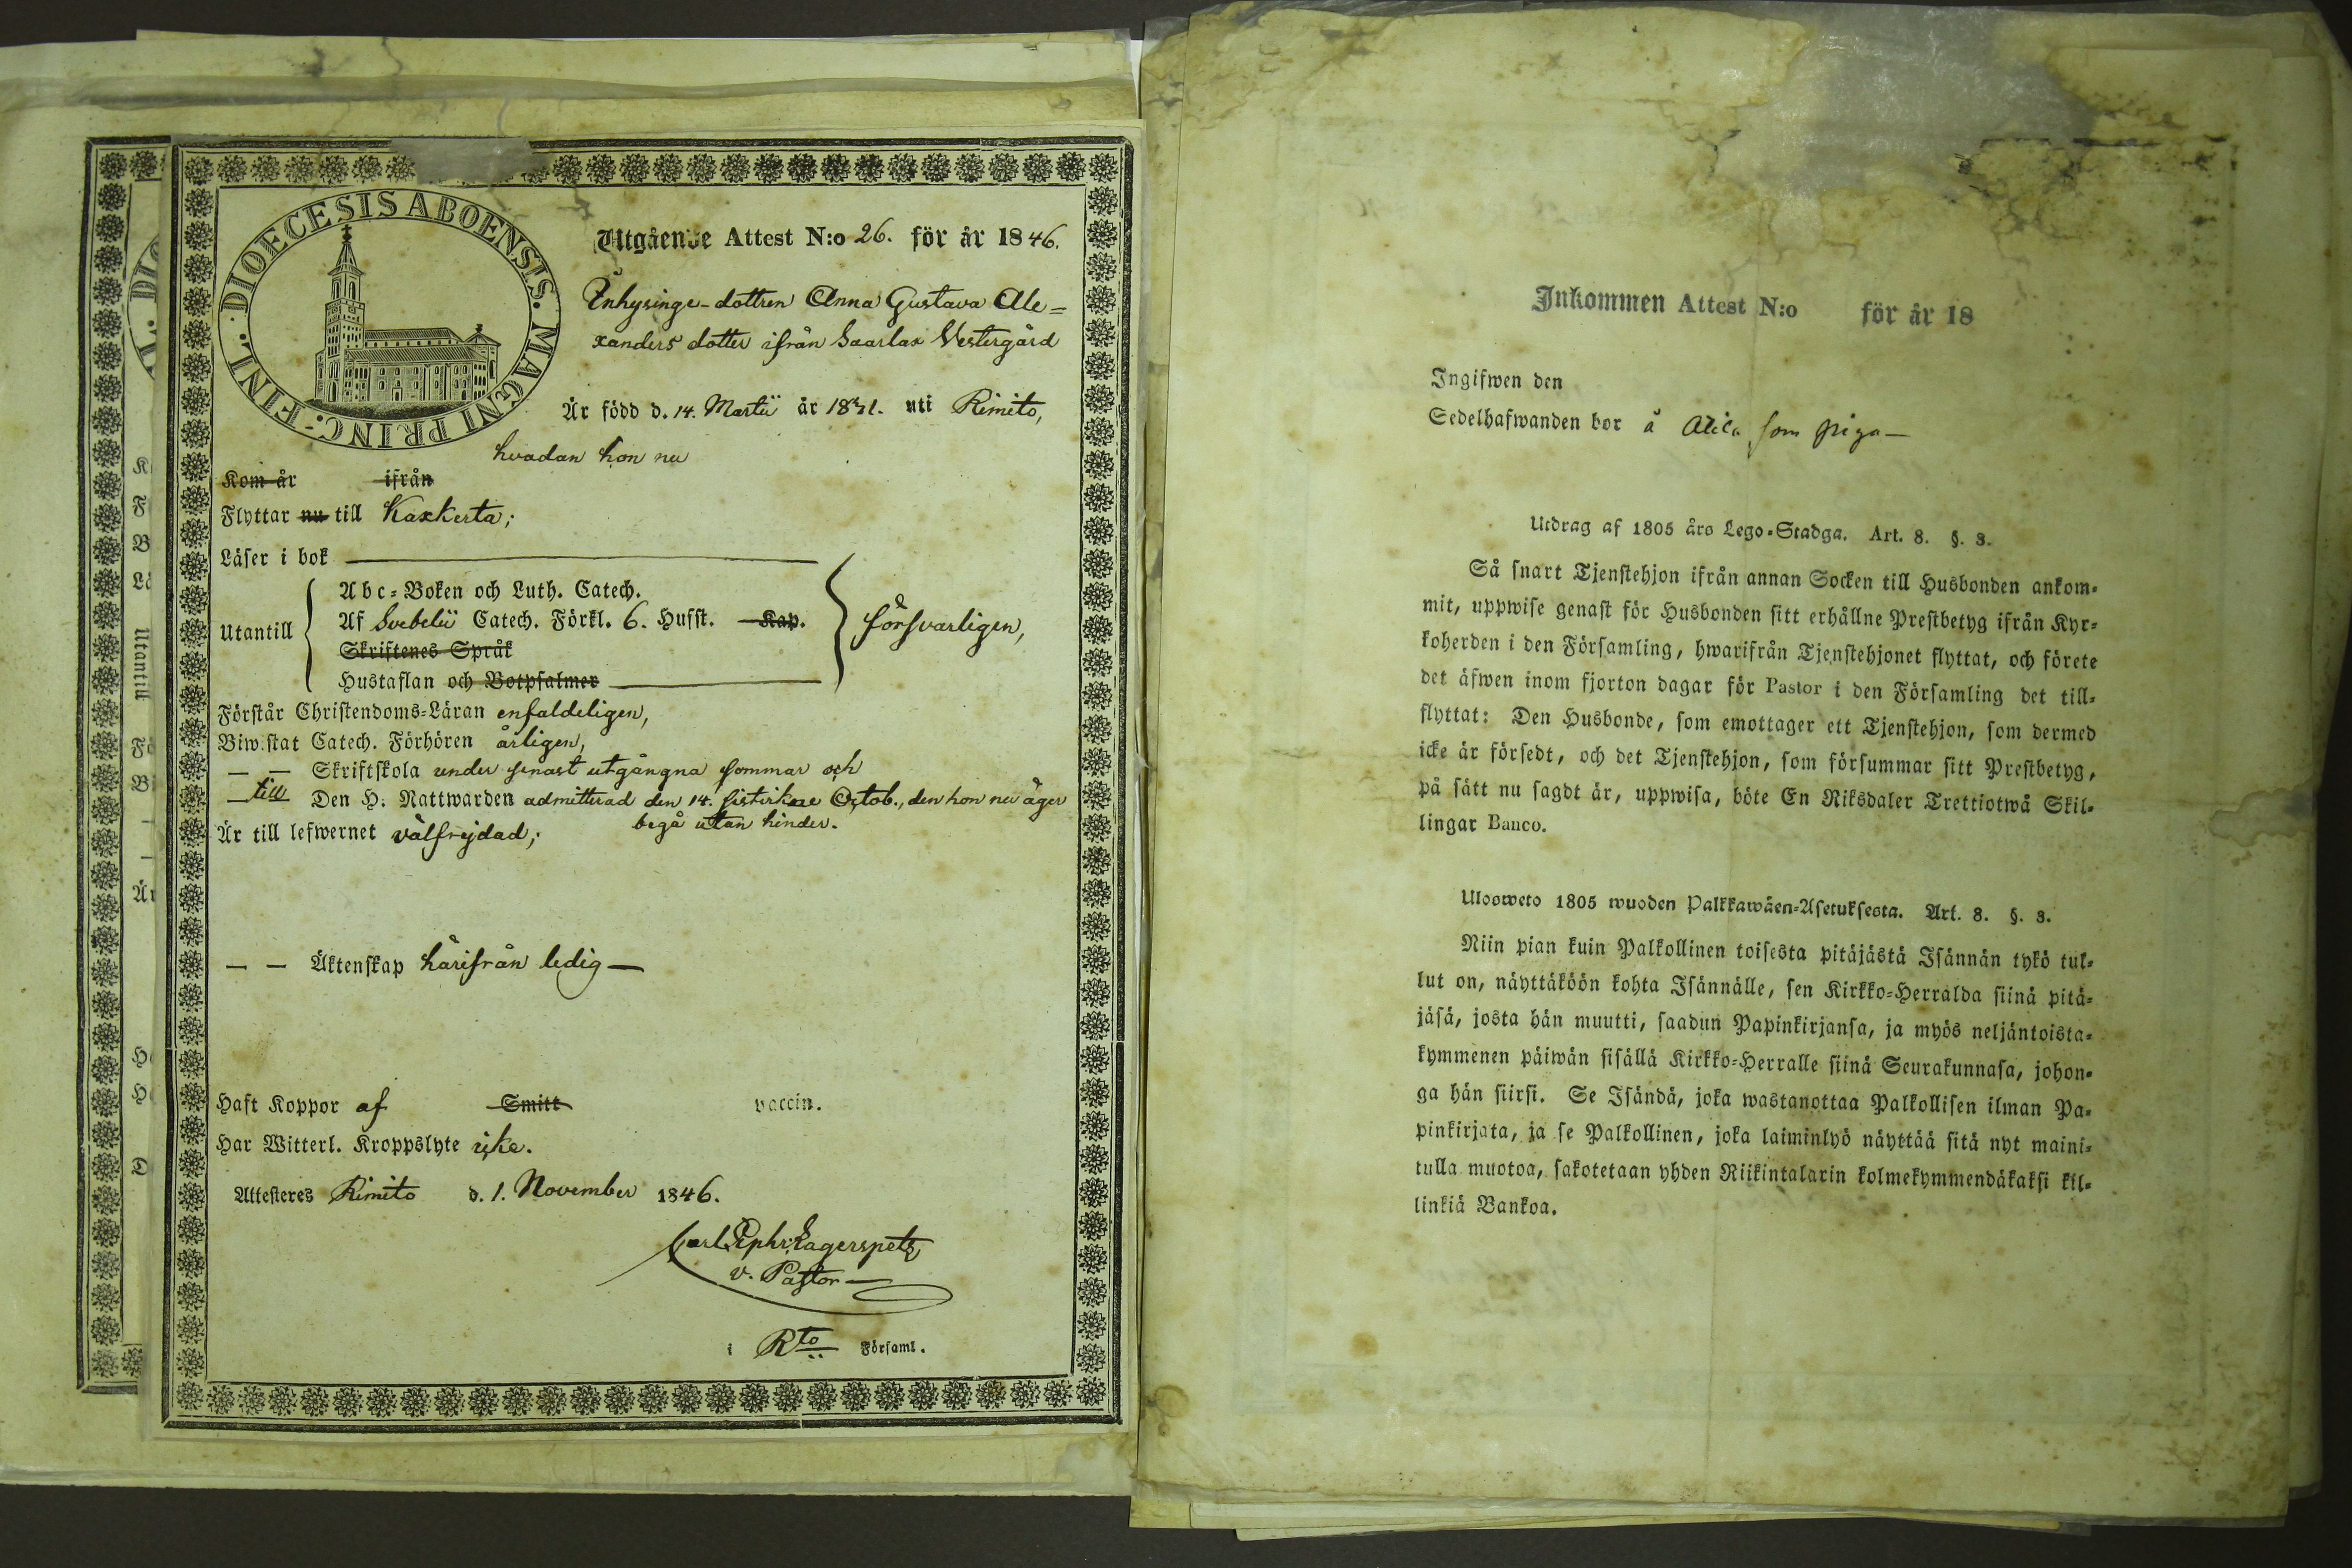 DIOECESIS ABOENSIS. MAGNI PRINC. FINL.
Utgående Attest N:o 26. för år 1846.
Inhysinge-dottren Anna Gustava Ale=
xanders dotter ifrån Saarlax Vestergård
Är född d. 14. Martii år 1831. uti Rimito,
hvadan hon nu
Kom år ifrån
Flyttar nu till Kaxkerta;
Läser i bok
Utantill
Abc=Boken och Luth. Catech.
Af Svebelii Catech. Förkl. 6. Hufst. Kap.
Skriftenes Språk
Hustaflan och Botpsalmer
försvarligen,
Förstår Christendoms=Läran enfaldeligen,
Biwistat Catech. Förhören årligen,
— — Skriftskola under senast utgångna sommar och
till Den H. Nattwarden admitterad den 14. sistvikne Octob., den hon nu äger
begå utan hinder.
Är till lefwernet välfrejdad;
— — Äktenskap härifrån ledig —
Haft Koppor af Smitt vaccin.
Har Witterl. Kroppslyte icke.
Attesteres Rimito d. 1. November 1846.
Carl Ephr. Lagerspetz
v. Pastor
i Rto Församl.
Inkommen Attest N:o för år 18
Ingifwen den
Sedelhafwanden bor å Alila som piga —
Utdrag af 1805 års Lego-Stadga. Art. 8. §. 3.
Så snart Tjenstehjon ifrån annan Socken till Husbonden ankom=
mit, uppwise genast för Husbonden sitt erhållne Prestbetyg ifrån Kyr=
koherden i den Församling, hwarifrån Tjenstehjonet flyttat, och förete
det äfwen inom fjorton dagar för Pastor i den Församling det till=
flyttat: Den Husbonde, som emottager ett Tjenstehjon, som dermed
icke är försedt, och det Tjenstehjon, som försummar sitt Prestbetyg,
på sätt nu sagdt är, uppwisa, böte En Riksdaler Trettiotwå Skil=
lingar Banco.
Ulosweto 1805 wuoden Palkkawäen=Asetuksesta. Art. 8. §. 3.
Niin pian kuin Palkollinen toisesta pitäjästä Isännän tykö tul=
lut on, näyttäköön kohta Isännälle, sen Kirkko=Herralda siinä pitä=
jäsä, josta hän muutti, saadun Papinkirjansa, ja myös neljäntoista=
kymmenen päiwän sisällä Kirkko=Herralle siinä Seurakunnasa, johon=
ga hän siirsi. Se Isändä, joka wastanottaa Palkollisen ilman Pa=
pinkirjata, ja se Palkollinen, joka laiminlyö näyttää sitä nyt maini=
tulla muotoa, sakotetaan yhden Riikintalarin kolmekymmendäkaksi kil=
linkiä Bankoa.